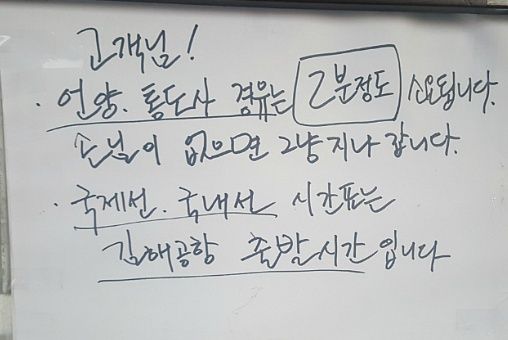 고객님!
· 언양. 통도사 경유는 2분정도 소요됩니다.
손님이 없으면 그냥 지나 갑니다.
· 국제선. 국내선 시간표는
김해공항 출발시간 입니다